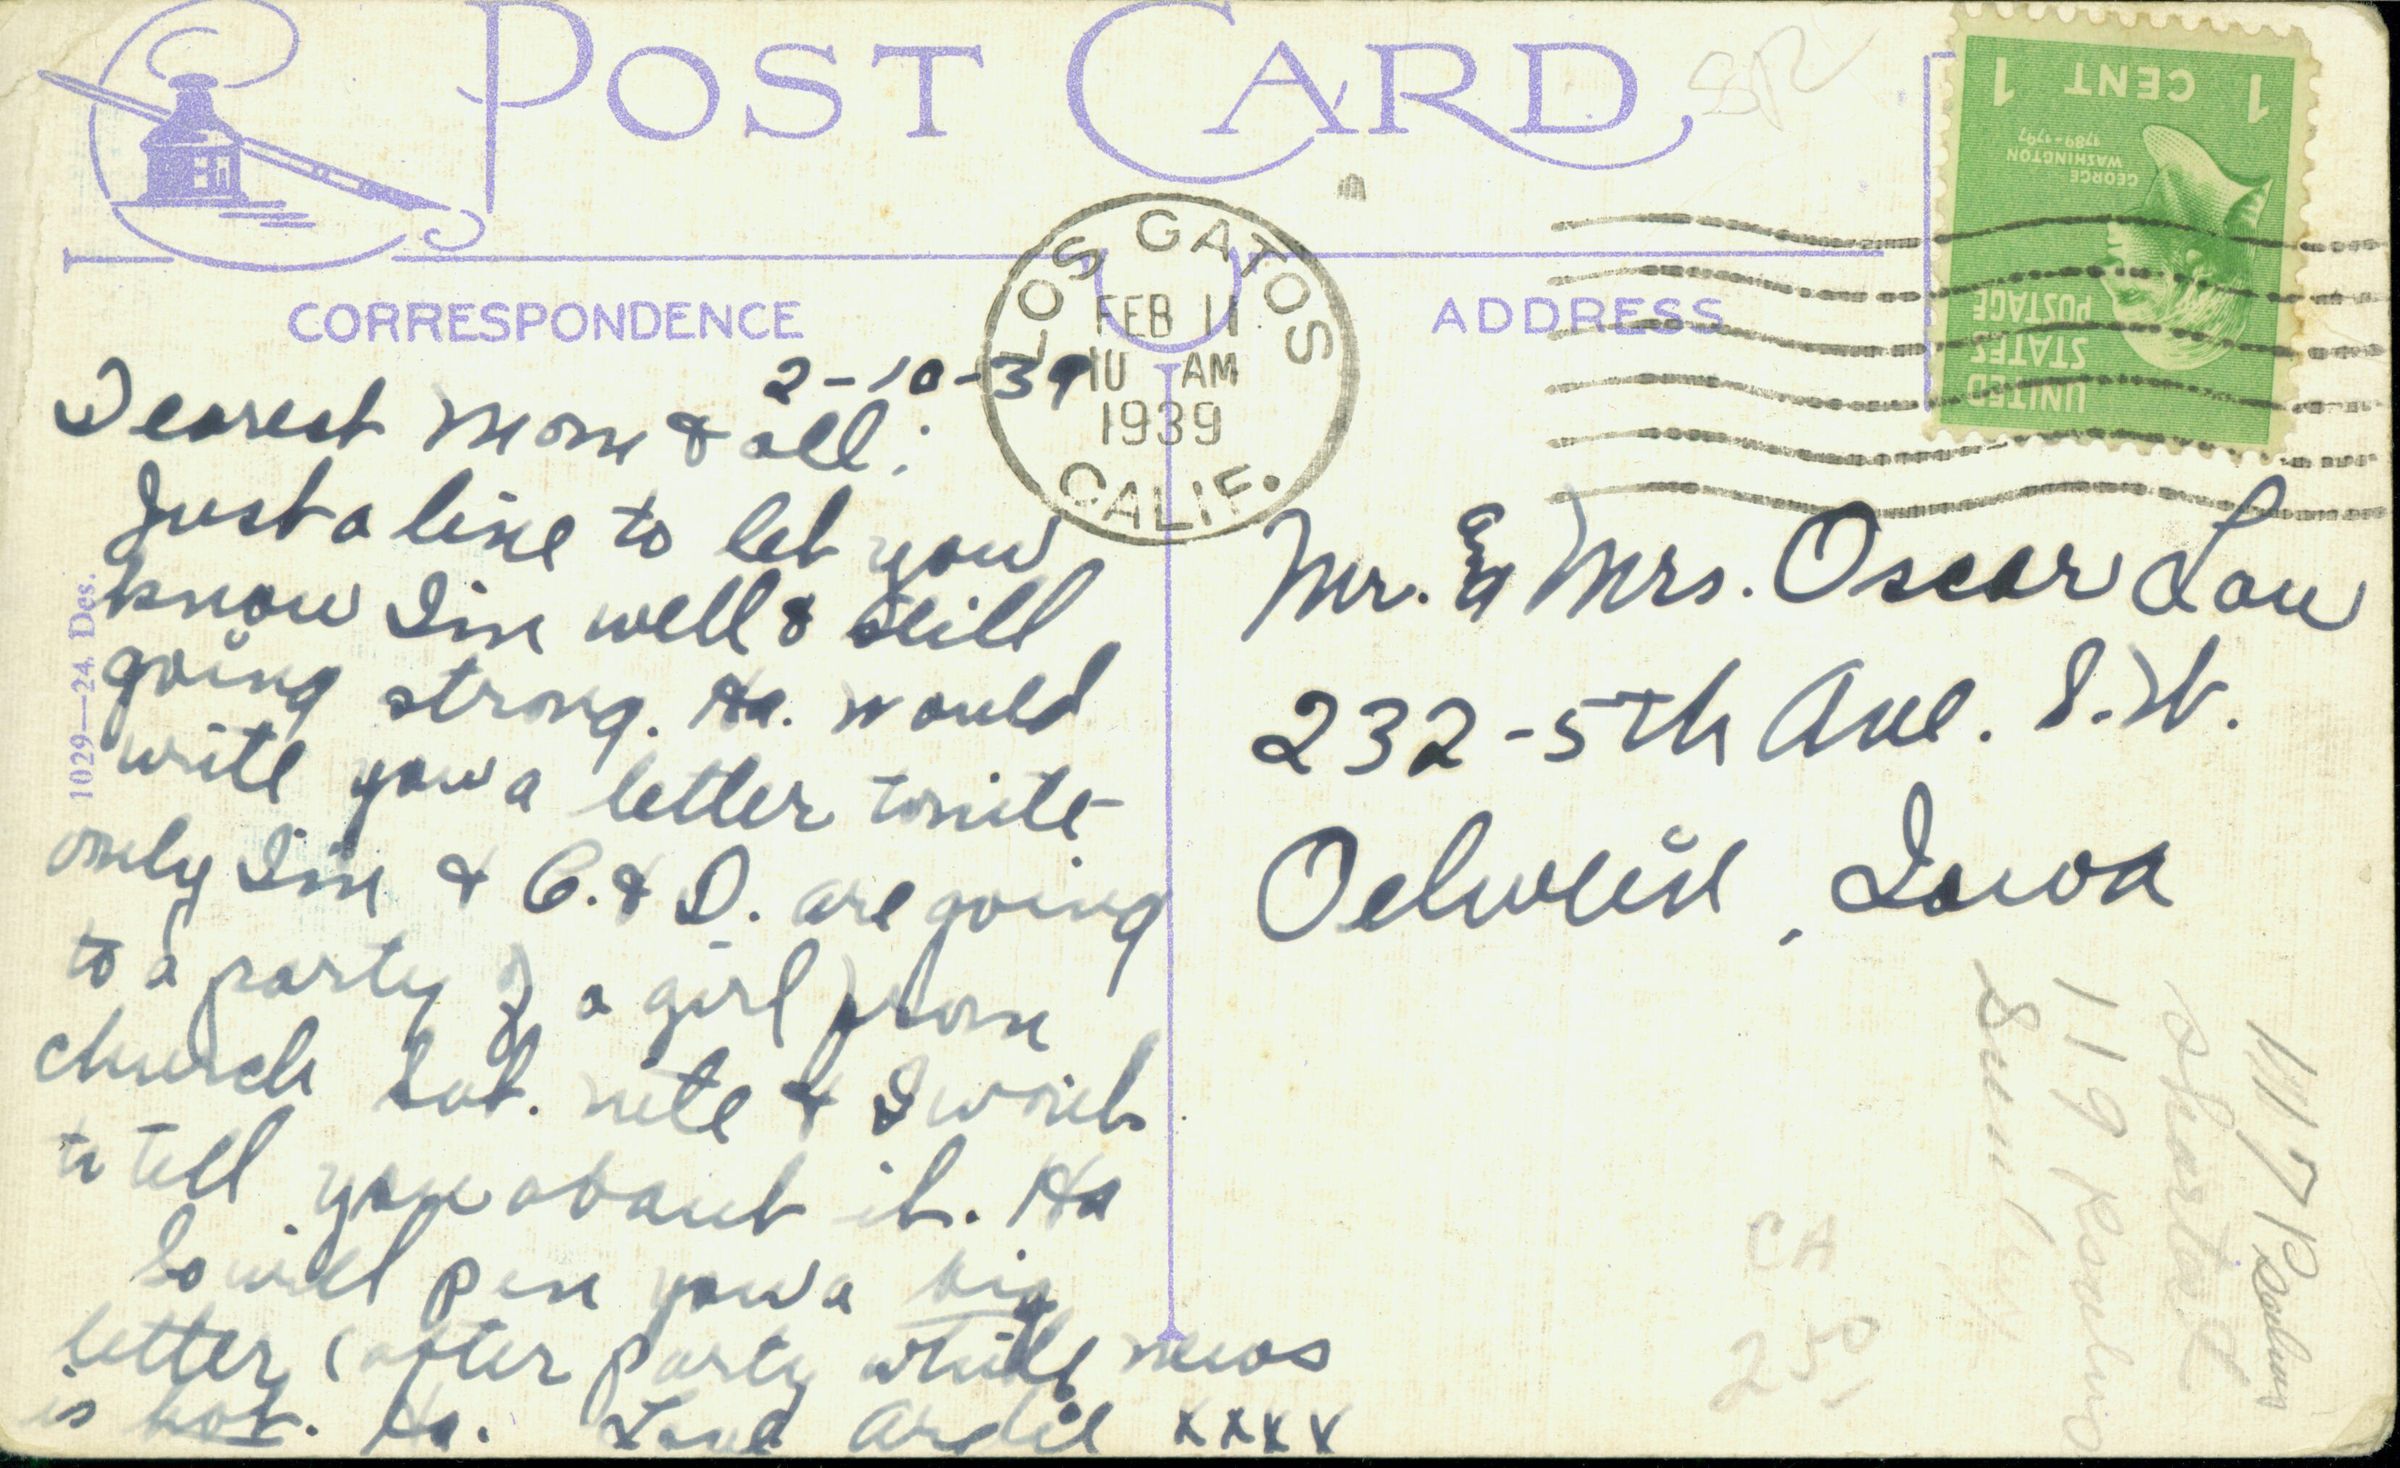 POST CARD
CORRESPONDENCE
ADDRESS
1 CENT 1
GEORGE
WASHINGTON
1789-1797
UNITED
STATES
POSTAGE
LOS GATOS
FEB 11
10 AM
1939
CALIF.
2-10-39
Dearest Mom & all:
Just a line to let you
know I'm well & still
going strong. Ha. Would
write you a letter tonite
only I'm & C. & D. are going
to a party of a girl from
church Sat. nite & I wish
to tell you about it. Ha
So will pen you a big
letter (after party while news
is hot. Ha. Love Ardel xxxx
1029—24. Des.
Mr. & Mrs. Oscar Low
232-5th Ave. S.W.
Oelwein, Iowa
CA
250
119